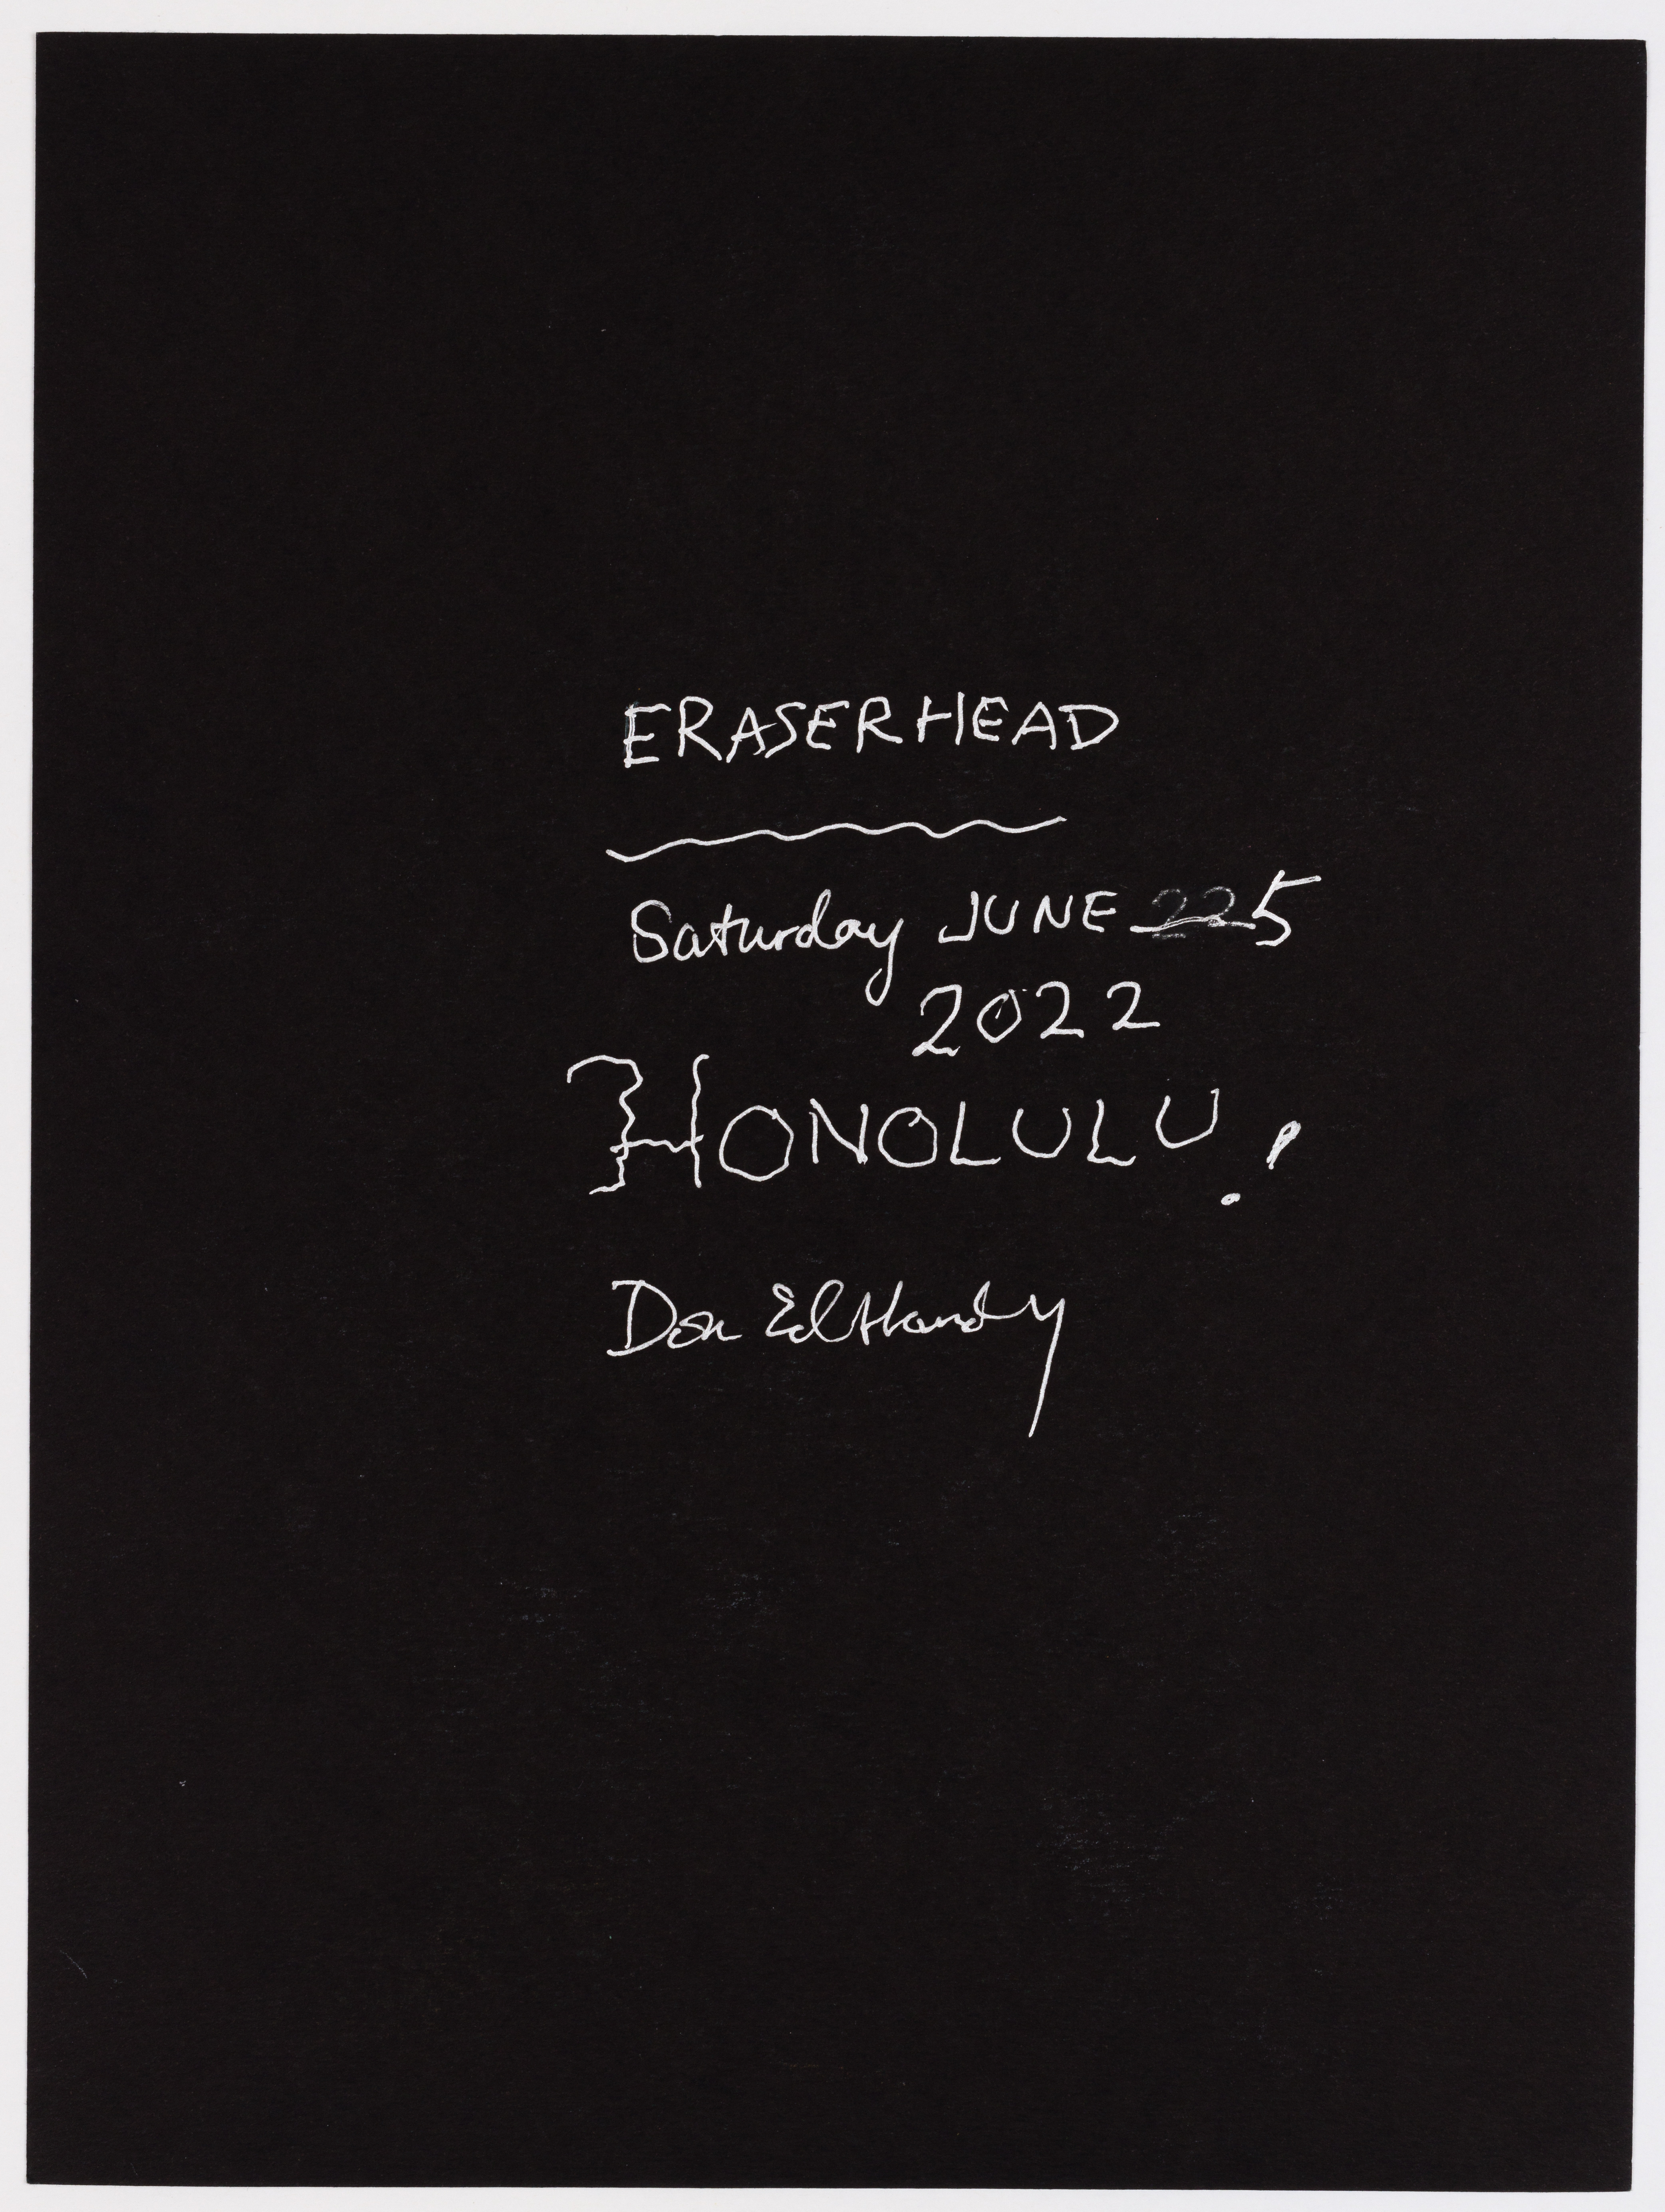 ERASERHEAD
Saturday JUNE 225
2022
HONOLULU!
Don Ed Hardy